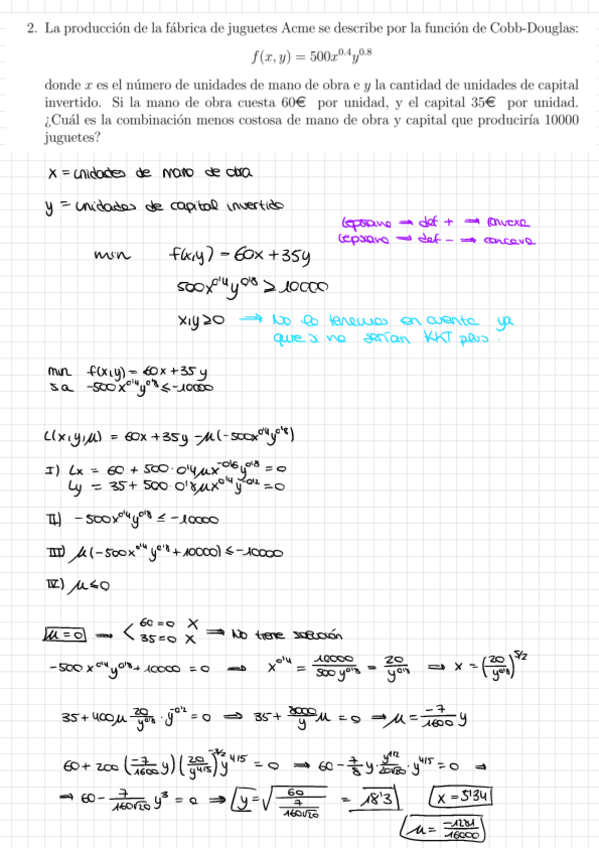 2. La producción de la fábrica de juguetes Acme se describe por la función de Cobb-Douglas:
f(x, y) = 500x^0.4y^0.8
donde x es el número de unidades de mano de obra e y la cantidad de unidades de capital
invertido. Si la mano de obra cuesta 60€ por unidad, y el capital 35€ por unidad.
¿Cuál es la combinación menos costosa de mano de obra y capital que produciría 10000
juguetes?
x = unidades de mano de obra
y = unidades de capital invertido
→ def + → convexa
→ def - → concava
min f(x,y) = 60x + 35y
500x^0'4 y^0'8 ≥ 10000
x,y ≥ 0 → No lo tenemos en cuenta ya
que si no serían KKT plus.
min f(x,y) = 60x + 35y
sa -500x^0'4 y^0'8 ≤ -10000
L(x,y,μ) = 60x + 35y - μ(-500x^0'4 y^0'8)
I) Lx = 60 + 500·0'4μx^-0'6 y^0'8 = 0
Ly = 35 + 500·0'8μx^0'4 y^-0'2 = 0
II) -500x^0'4 y^0'8 ≤ -10000
III) μ(-500x^0'4 y^0'8 + 10000) ≤ -10000
IV) μ ≤ 0
μ = 0 → < 60 = 0 X
35 = 0 X ⇒ No tiene solución
-500x^0'4 y^0'8 + 10000 = 0 → x^0'4 = 10000/500y^0'8 = 20/y^0'8 ⇒ x = (20/y^0'8)^5/2
35 + 400μ 20/y^0'8 · y^-0'2 = 0 ⇒ 35 + 8000/y μ = 0 ⇒ μ = -7/1600 y
60 + 200(-7/1600 y)(20/y^4/5)^-3/2 y^4/5 = 0 → 60 - 7/8 y · y^1'2/20√20 · y^4/5 = 0 →
→ 60 - 7/160√20 y^3 = 0 ⇒ y = √(60/(7/160√20)) = 18'3 x = 5'34
μ = -1281/16000